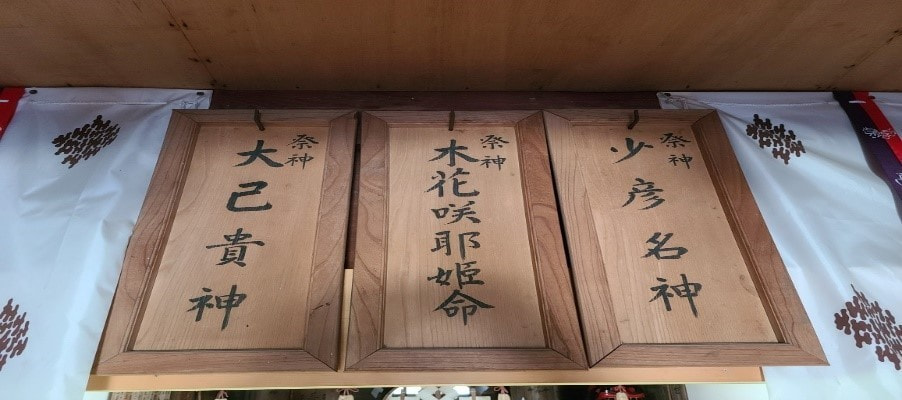 祭神
少彦名神
祭神
木花咲耶姫命
祭神
大己貴神